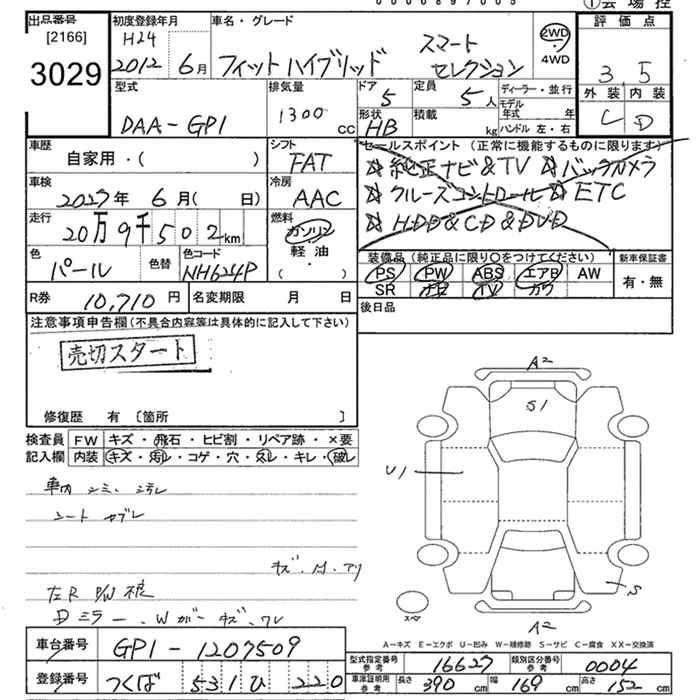 出品番号
[2166]
3029
初度登録年月
H24
2012年 6月
車名・グレード
フィットハイブリッド スマート
セレクション
2WD
・
4WD
評価点
3 5
外装 内装
C D
型式
DAA-GP1
排気量
1300 cc
ドア
5
定員
5人
形状
HB
積載
kg
ディーラー・並行
モデル
年式 年
ハンドル 左・右
車歴
自家用・( )
シフト
FAT
セールスポイント (正常に機能するものに限ります)
☆純正ナビ&TV ☆バックカメラ
☆クルーズコントロール ☆ETC
☆HDD&CD&DVD
車検
2027年 6月( 日)
冷房
AAC
走行
20万9千502km
燃料
ガソリン
軽油
( ・ )
色
パール
色替
色コード
NH624P
装備品 (純正品に限り○をつけてください)
新車保証書
PS PW ABS エアB AW
SR ナビ TV カワ
有・無
R券 10,710円
名変期限 月 日
後日品
注意事項申告欄(不具合内容等は具体的に記入して下さい)
売切スタート
修復歴 有 [箇所 ]
検査員
記入欄
FW キズ・飛石・ヒビ割・リペア跡・×要
内装 キズ・汚レ・コゲ・穴・スレ・キレ・破レ
シート
左R
Dミラー
A2
S1
U1
S
スペア
A2
A-キズ E-エクボ U-凹み W-補修跡 S-サビ C-腐食 XX-交換済
車台番号 GP1-1207509
登録番号 つくば 531 ひ 220
型式指定番号
参考
16627
類別区分番号
参考
0004
車庫証明用
参考
長さ 390cm 幅 169cm 高さ 152cm